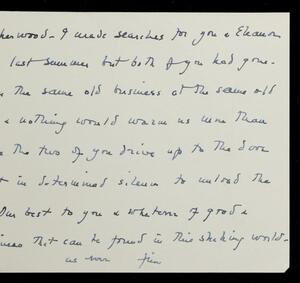 herwood - I made searches for you & Eleanor
last summer but both of you had gone.
the same old business at the same old
& nothing would warm us more than
the two of you drive up to the door
in determined silence to unload the
Our best to you & whatever of good &
that can be found in this shaking world -
as ever Jim